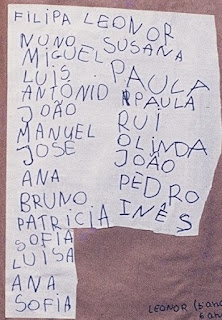 FILIPA LEONOR
NUNO SUSANA
MIGUEL
LUIS PAULA
ANTÓNIO PAULA
JOÃO RUI
MANUEL OLINDA
JOSÉ JOÃO
ANA PEDRO
BRUNO INÊS
PATRICIA
SOFIA
LUISA
ANA
SOFIA
LEONOR (5 ano
6 an